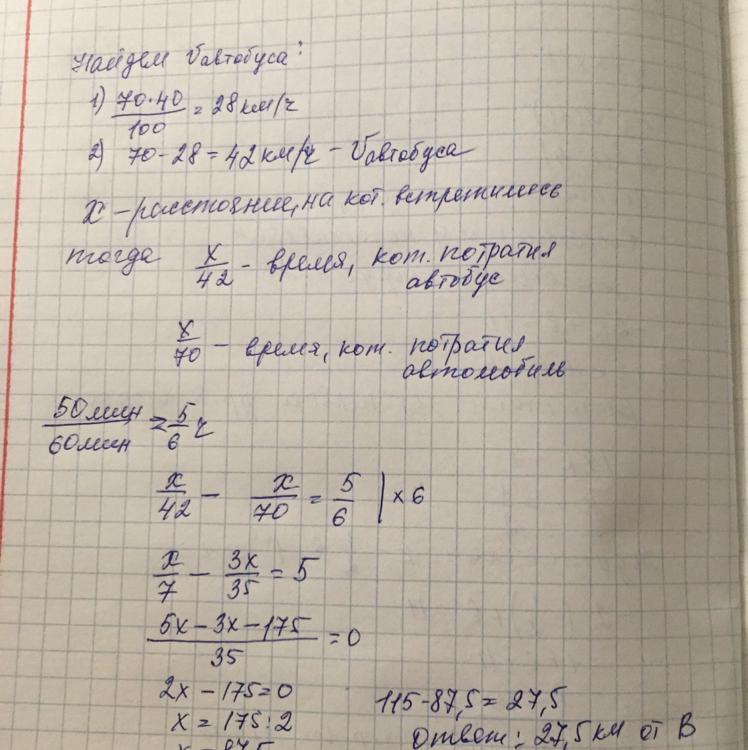 Найдем Vавтобуса:
1) 70·40/100 = 28 км/ч
2) 70 - 28 = 42 км/ч - Vавтобуса
x - расстояние, на кот. встретились
тогда x/42 - время, кот. потратил
автобус
x/70 - время, кот. потратил
автомобиль
50мин/60мин = 5/6 ч
x/42 - x/70 = 5/6 | × 6
x/7 - 3x/35 = 5
5x - 3x - 175/35 = 0
2x - 175 = 0
x = 175:2
115-87,5 = 27,5
Ответ: 27,5 км от В
x = 87,5